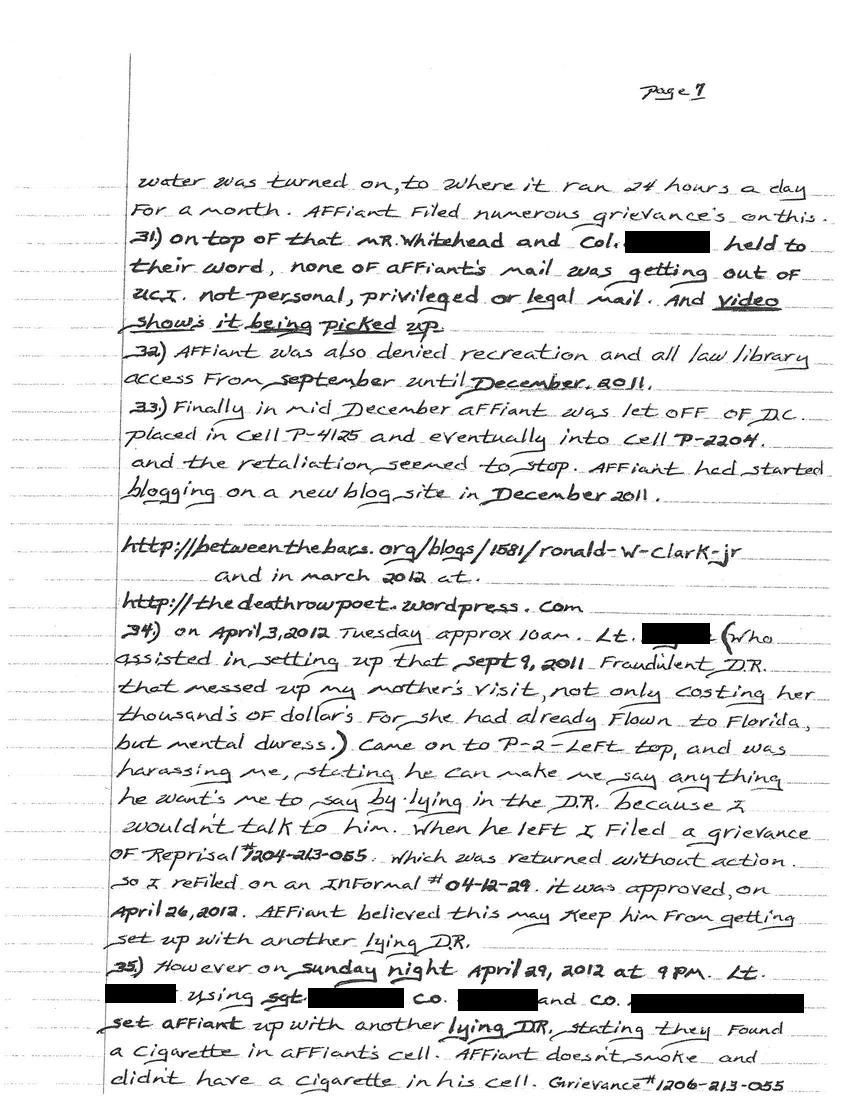 Page 7
water was turned on, to where it ran 24 hours a day
For a month. AFFiant Filed numerous grievance's on this.
31) on top of that MR. Whitehead and Col. held to
their word, none of aFFiant's mail was getting out of
U.C.I. not personal, privileged or legal mail. And video
show's it being picked up.
32) AFFiant was also denied recreation and all law library
access From september until December. 2011.
33.) Finally in mid December aFFiant was let oFF of D.C.
placed in cell P-4125 and eventually into cell P-2204.
and the retaliation seemed to stop. AFFiant had started
blogging on a new blog site in December 2011.
http://betweenthebars.org/blogs/1581/ronald-W-Clark-jr
and in march 2012 at.
http://thedeathrowpoet.wordpress.com
34) on April 3, 2012 Tuesday approx 10am. Lt. (who
assisted in setting up that sept 9, 2011 Fraudulent D.R.
that messed up my mother's visit, not only costing her
thousand's of dollar's For she had already Flown to Florida,
but mental duress.) Came on to P-2-Left top, and was
harassing me, stating he can make me say anything
he want's me to say by lying in the D.R. because I
wouldn't talk to him. When he left I Filed a grievance
OF Reprisal #1204-213-055. Which was returned without action.
so I reFiled on an InFormal # 04-12-29. it was approved, on
April 26, 2012. AFFiant believed this may Keep him From getting
set up with another lying D.R.
35.) However on sunday night April 29, 2012 at 9 PM. Lt.
using sgt. co. and co.
set aFFiant up with another lying D.R. stating they Found
a cigarette in aFFiant's cell. AFFiant doesn't smoke and
didn't have a cigarette in his cell. Grievance #1206-213-055